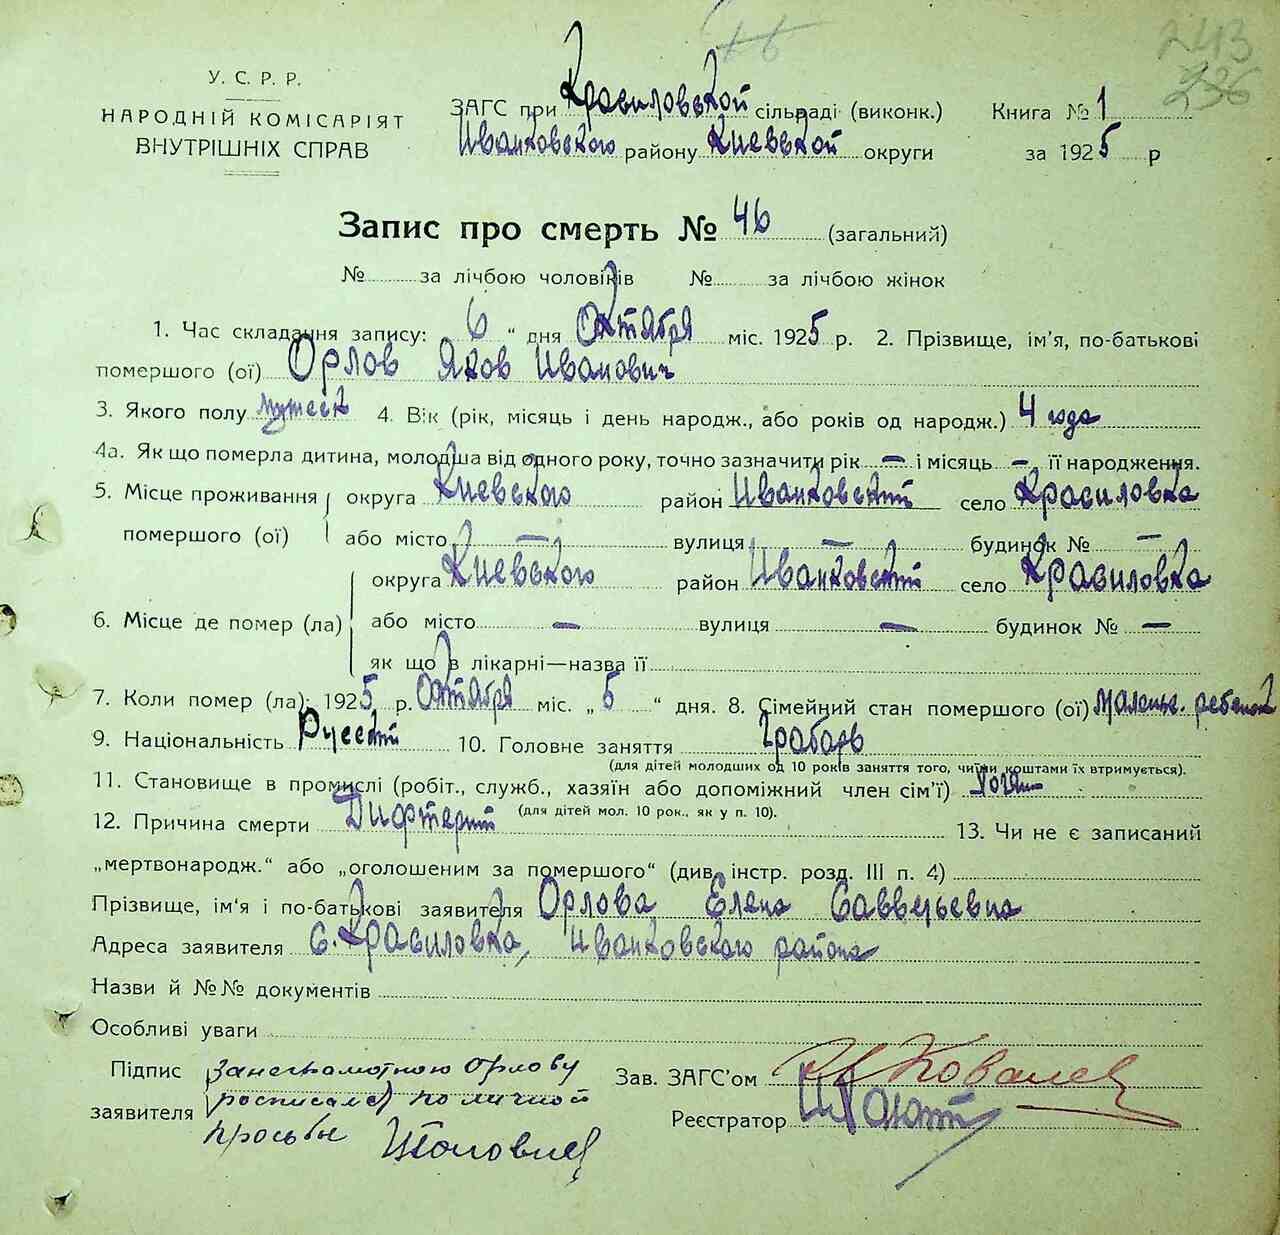 243
236
У. С. Р. Р.
НАРОДНІЙ КОМІСАРІЯТ
ВНУТРІШНІХ СПРАВ
ЗАГС при Красиловской сільраді (виконк.)
Иванковского району Киевской округи
Книга № 1
за 1925 р
Запис про смерть № 46 (загальний)
№ за лічбою чоловіків № за лічбою жінок
1. Час складання запису: 6 “ дня Октября міс. 1925 р. 2. Прізвище, ім'я, по-батькові
помершого (ої) Орлов Яков Иванович
3. Якого полу мужеск 4. Вік (рік, місяць і день народж., або років од народж.) 4 года
4а. Як що померла дитина, молодша від одного року, точно зазначити рік — і місяць — її народження.
5. Місце проживання округа Киевского район Иванковский село Красиловка
помершого (ої) або місто — вулиця — будинок № —
округа Киевського район Иванковский село Красиловка
6. Місце де помер (ла) або місто — вулиця — будинок № —
як що в лікарні—назва її
7. Коли помер (ла): 1925 р. Октября міс. „ 5 “ дня. 8. Сімейний стан помершого (ої) маленьк. ребенок
9. Національність Русский 10. Головне заняття Грабарь
(для дітей молодших од 10 років заняття того, чиїми коштами їх втримується).
11. Становище в промислі (робіт., служб., хазяїн або допоміжний член сім'ї)
(для дітей мол. 10 рок., як у п. 10).
12. Причина смерти Дифтерит 13. Чи не є записаний
„мертвонародж.“ або „оголошеним за помершого“ (див. інстр. розд. III п. 4)
Прізвище, ім'я і по-батькові заявителя Орлова Елена Савельевна
Адреса заявителя с. Красиловка, Иванковского района
Назви й №№ документів
Особливі уваги
Підпис заявителя За неграмотною Орлову
росписался по личной
просьбы
Зав. ЗАГС'ом Ковалев
Реєстратор